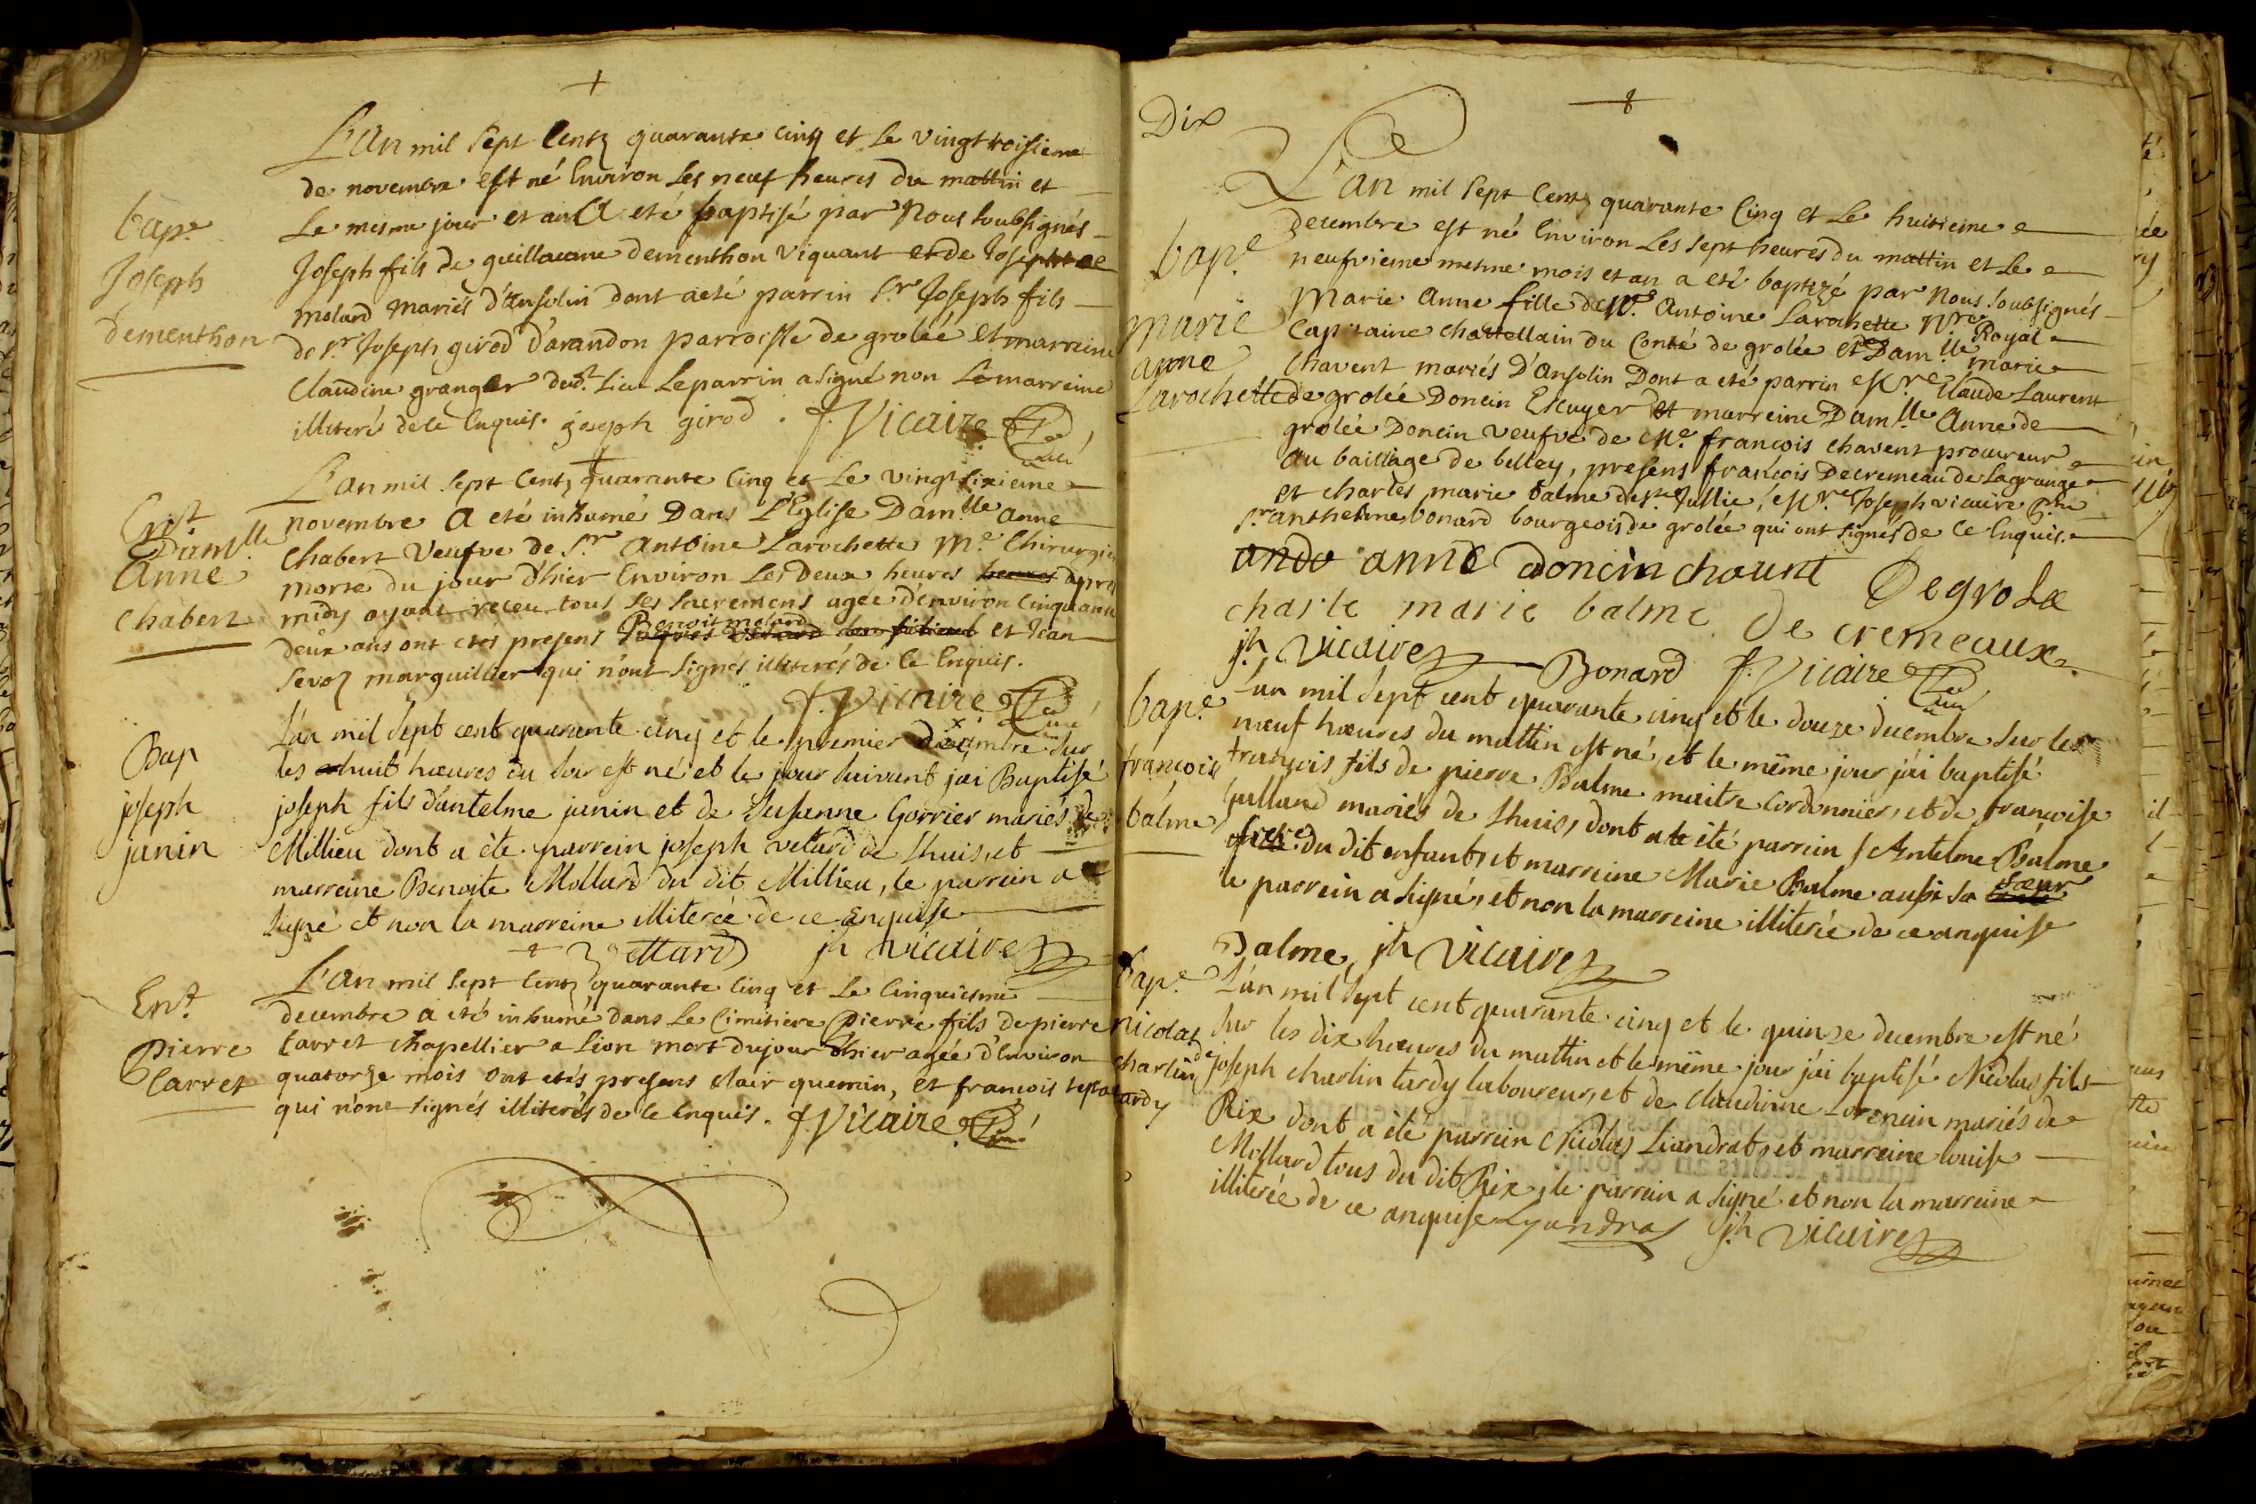 L'an mil Sept Centz quarante cinq et Le vingt troisieme
de novembre est né Environ Les neuf heures du mattin et
Le mesme jour et an a eté baptisé par Nous Soubsignés
bap.e
Joseph
dementhon
Joseph fils de guillaume dementhon viquant et de Josephte
molard mariés d'Ansolin dont a eté parrin S.r Joseph fils
de S.r Joseph girod d'arandon parroisse de groleé et marreine
Claudine granger dud.t Lieu Le parrin a signé non La marreine
illiteré de Ce Enquis. joseph girod. J. Vicaire Curé
L'an mil Sept Centz quarante Cinq et Le vingt sixieme
novembre A eté inhumé Dans L'Eglise Dam.lle anne
Ent.
Dam.lle
Anne
Chabert
Chabert Veufve de S.r Antoine Larochette M.e Chirurgien
morte du jour d'hier Environ Les Deux heures heures apres
midy ayant receu tous Ses Sacremens agée d'environ Cinquante
deux ans ont etes presens Benoit molard et Jean
Sevoz marguillier qui n'ont Signés illiterés de Ce Enquis.
J. Vicaire Curé
L'an mil Sept cent quarante cinq et le premier décembre Sur
les huit hœures du Soir est né et le jour suivant j'ai Baptisé
Bap
joseph
janin
joseph fils d'antelme janin et de Susanne Gorrier mariés de
Millieu dont a èté parrein joseph vetard de lhuis, et
marreine Benoite Mollard du dit Millieu, le parrein a
Signé et non la marreine illiterée de ce Enquise
jh vicaire
L'an mil Sept Centz quarante Cinq et Le Cinquiesme
Ent.
Pierre
Carret
decembre a eté inhumé dans Le Cimitiere Pierre fils de pierre
Carret Chapellier a Lion mort du jour d'hier agée d'Environ
quatorze mois Ont etés presens Clair quemin, et francois
qui n'ont signés illiterés de Ce Enquis. J. Vicaire Curé
Dix
L'an mil Sept Centz quarante Cinq et Le huitieme
decembre est né Environ Les Sept heures du mattin et Le
neufvieme mesme mois et an a eté baptizé par Nous Soubsignés
bap.e
marie
anne
Larochette
Marie Anne fille de M.e Antoine Larochette N.re Royal
Capitaine chattellain du Conté de grolée et Dam.lle marie
Chavent mariés D'ansolin Dont a eté parrin Claude Laurent
de grolée Doncin Escuyer et marreine Dam.lle Anne de
grolée Doncin veufve de M.e francois Chavent procureur
au bailliage de belley, presens francois Decremeau de Lagrange
et charles marie balme de S.te Jullie, Joseph vicaire
S.r anthelme bonard bourgeois de grolée qui ont signés de Ce Enquis.
anne doncin chavent Degrolée
charle marie balme De cremeaux
jh vicaire Bonard J. Vicaire Curé
bap.e
francois
balme
L'an mil Sept cent quarante cinq et le douze decembre Sur les
nœuf hœures du mattin est né, et le même jour j'ai baptisé
françois fils de pierre Balme maitre Cordonnier, et de françoise
mariés de lhuis, dont a été parrin Antelme Balme
frere du dit enfant, et marreine Marie Balme aussi Sa sœur
le parrein a Signé, et non la marreine illiterée de ce anquise
Balme, jh vicaire
bap.e
nicolas
charlin de
tardy
L'an mil Sept cent quarante cinq et le quinze decembre est né
Sur les dix hœures du mattin et le même jour j'ai baptisé Nicolas fils
joseph charlin tardy laboureur, et de claudinne Lorencin mariés de
Rix dont a été parrain Nicolas Liandrat, et marreine louise
Mollard tous du dit Rix, le parrein a Signé et non la marreine
illiterée de ce anquise Lyandras jh vicaire